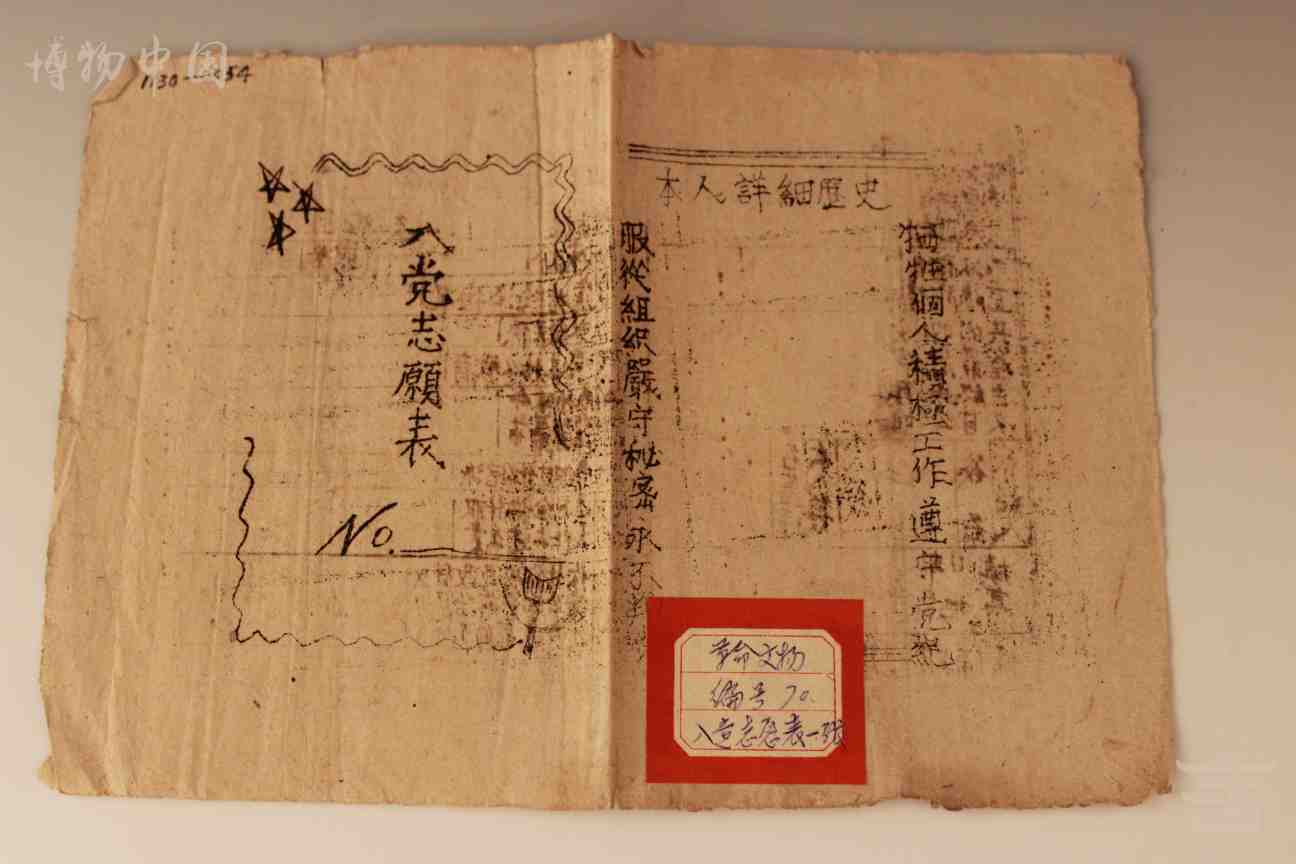 博物中国
入党志願表
No.
本人詳細歷史
犧牲個人積極工作遵守党紀
服從組織嚴守秘密永不
革命文物
编号 70.
入党志愿表一张